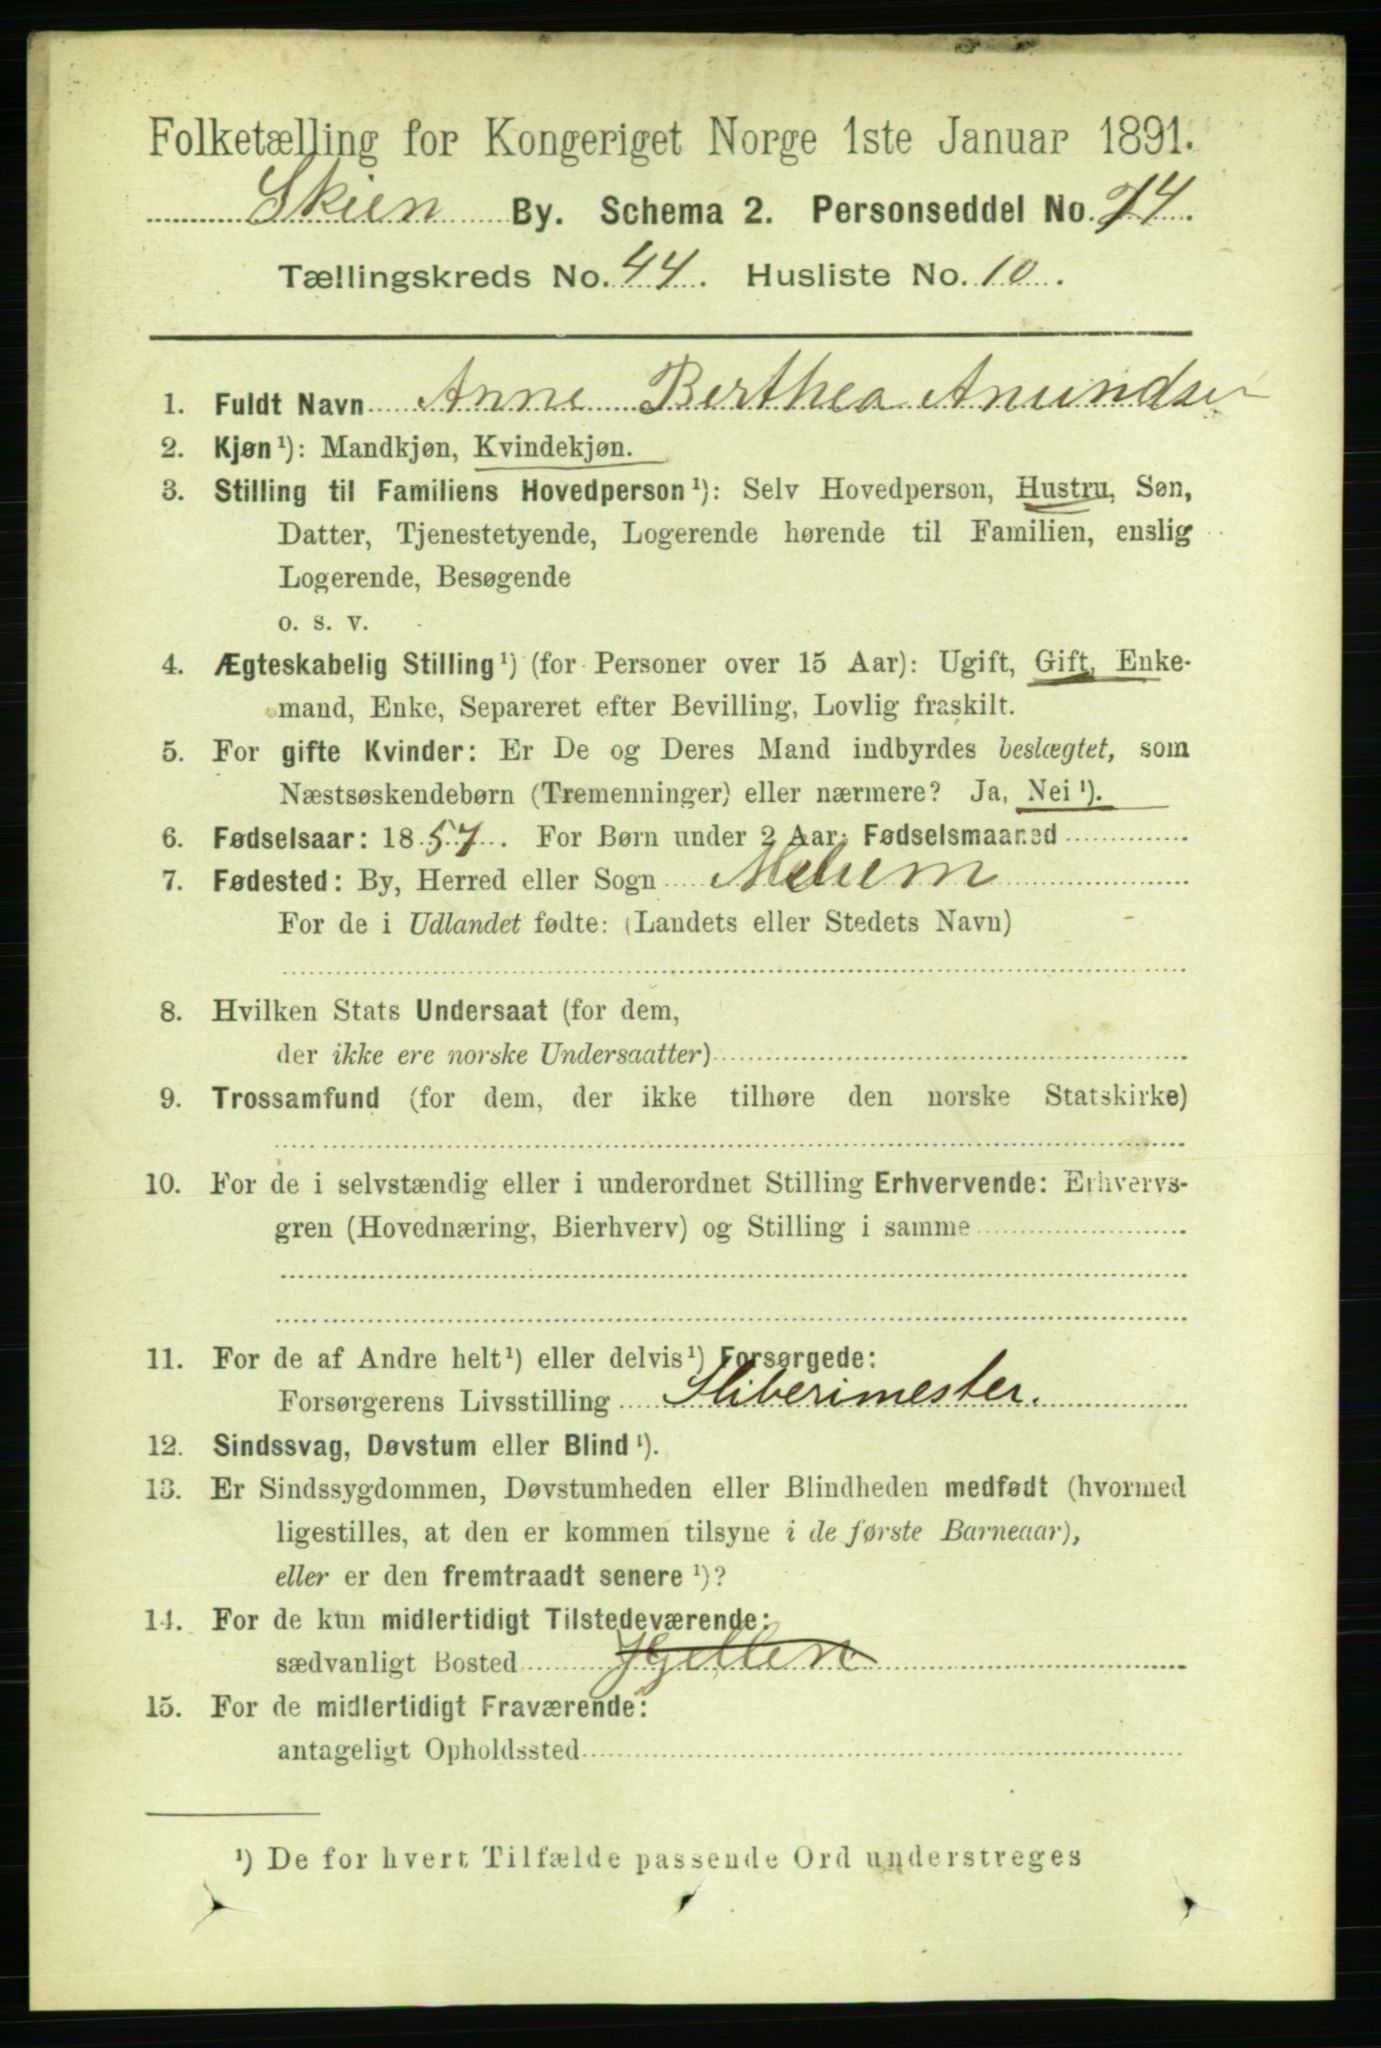 Folketælling for Kongeriget Norge 1ste Januar 1891.
Skien By. Schema 2. Personseddel No. 74.
Tællingskreds No. 44. Husliste No. 10.
1. Fuldt Navn Anne Berthea Anundsen
2. Kjøn¹): Mandkjøn, Kvindekjøn.
3. Stilling til Familiens Hovedperson¹): Selv Hovedperson, Hustru, Søn,
Datter, Tjenestetyende, Logerende hørende til Familien, enslig
Logerende, Besøgende
o. s. v.
4. Ægteskabelig Stilling¹) (for Personer over 15 Aar): Ugift, Gift, Enke-
mand, Enke, Separeret efter Bevilling, Lovlig fraskilt.
5. For gifte Kvinder: Er De og Deres Mand indbyrdes beslægtet, som
Næstsøskendebørn (Tremenninger) eller nærmere? Ja, Nei¹).
6. Fødselsaar: 1857. For Børn under 2 Aar: Fødselsmaaned
7. Fødested: By, Herred eller Sogn Melum
For de i Udlandet fødte: (Landets eller Stedets Navn)
8. Hvilken Stats Undersaat (for dem,
der ikke ere norske Undersaatter)
9. Trossamfund (for dem, der ikke tilhøre den norske Statskirke)
10. For de i selvstændig eller i underordnet Stilling Erhvervende: Erhvervs-
gren (Hovednæring, Bierhverv) og Stilling i samme
11. For de af Andre helt¹) eller delvis¹) Forsørgede:
Forsørgerens Livsstilling Sliberimester.
12. Sindssvag, Døvstum eller Blind¹).
13. Er Sindssygdommen, Døvstumheden eller Blindheden medfødt (hvormed
ligestilles, at den er kommen tilsyne i de første Barneaar),
eller er den fremtraadt senere¹)?
14. For de kun midlertidigt Tilstedeværende:
sædvanligt Bosted
15. For de midlertidigt Fraværende:
antageligt Opholdssted
¹) De for hvert Tilfælde passende Ord understreges